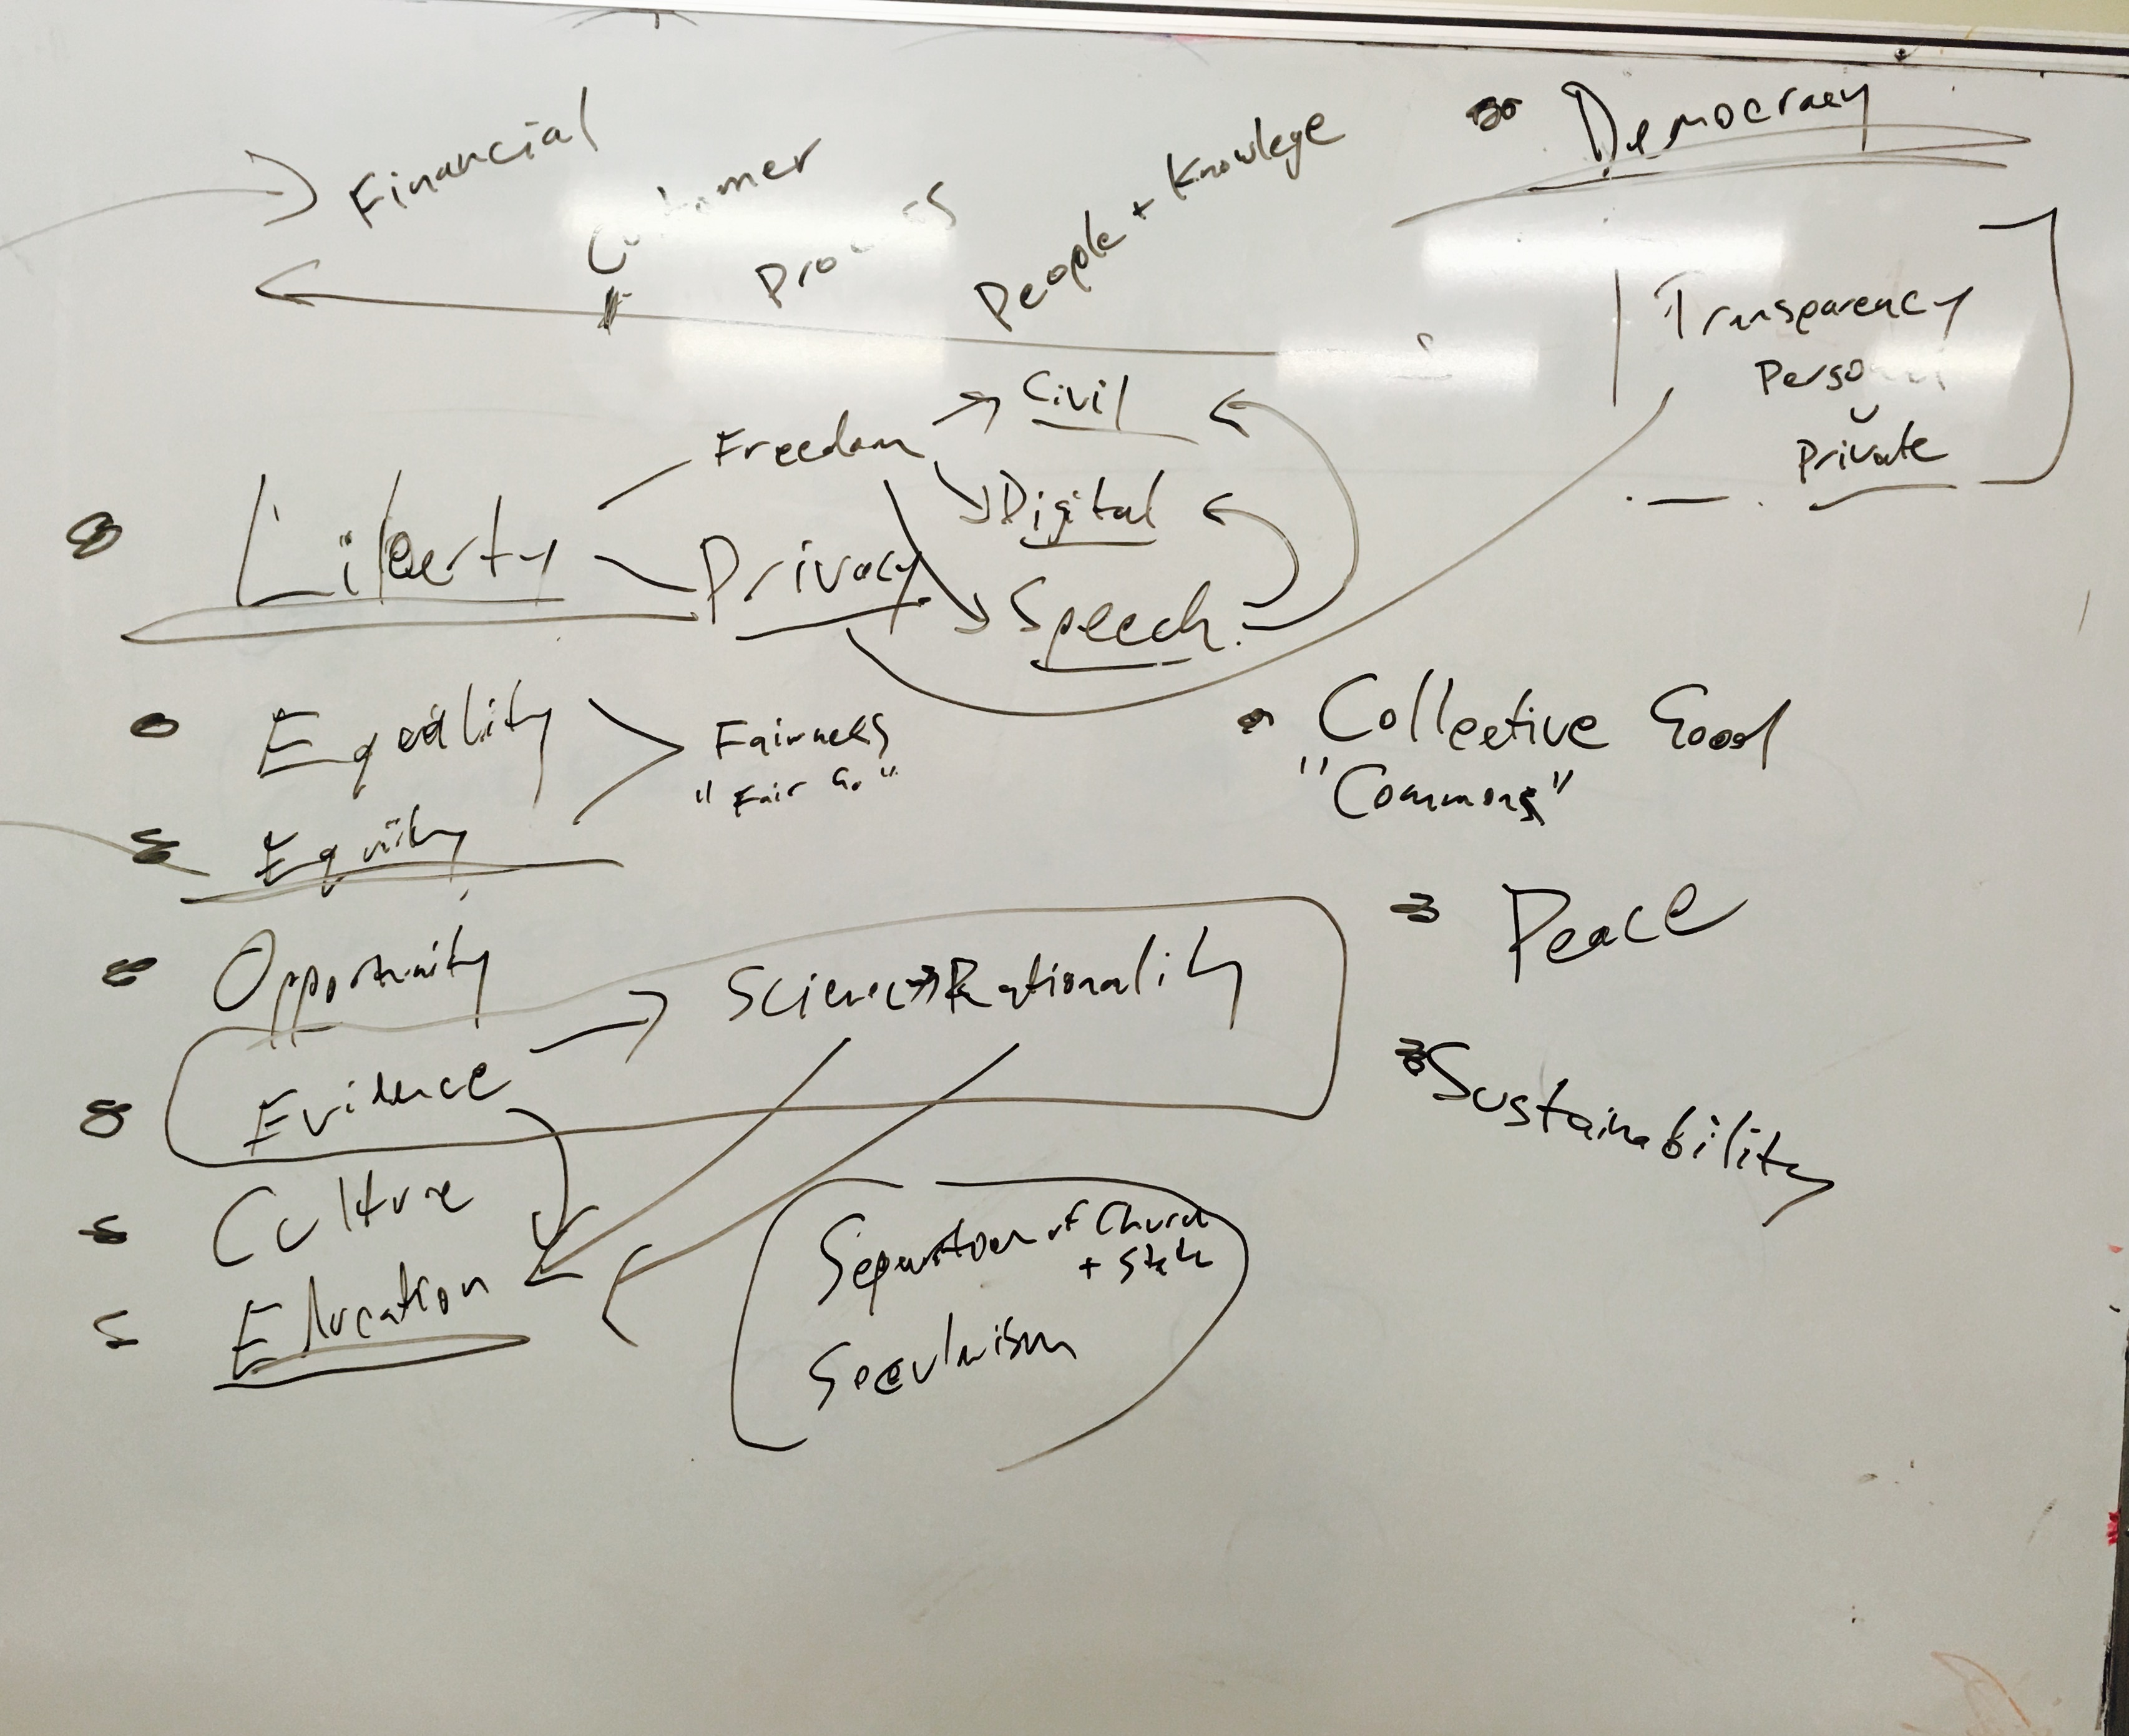 Financial
Customer
Process
People + Knowlege
Democracy
Transparency
Personal
v
Private
Liberty
Freedom
Privacy
Civil
Digital
Speech
Equality
Fairness
"Fair Go"
Equity
Collective Good
"Commons"
Opportunity
Peace
Evidence
Science + Rationality
Sustainability
Culture
Education
Separation of Church
+ State
Secularism